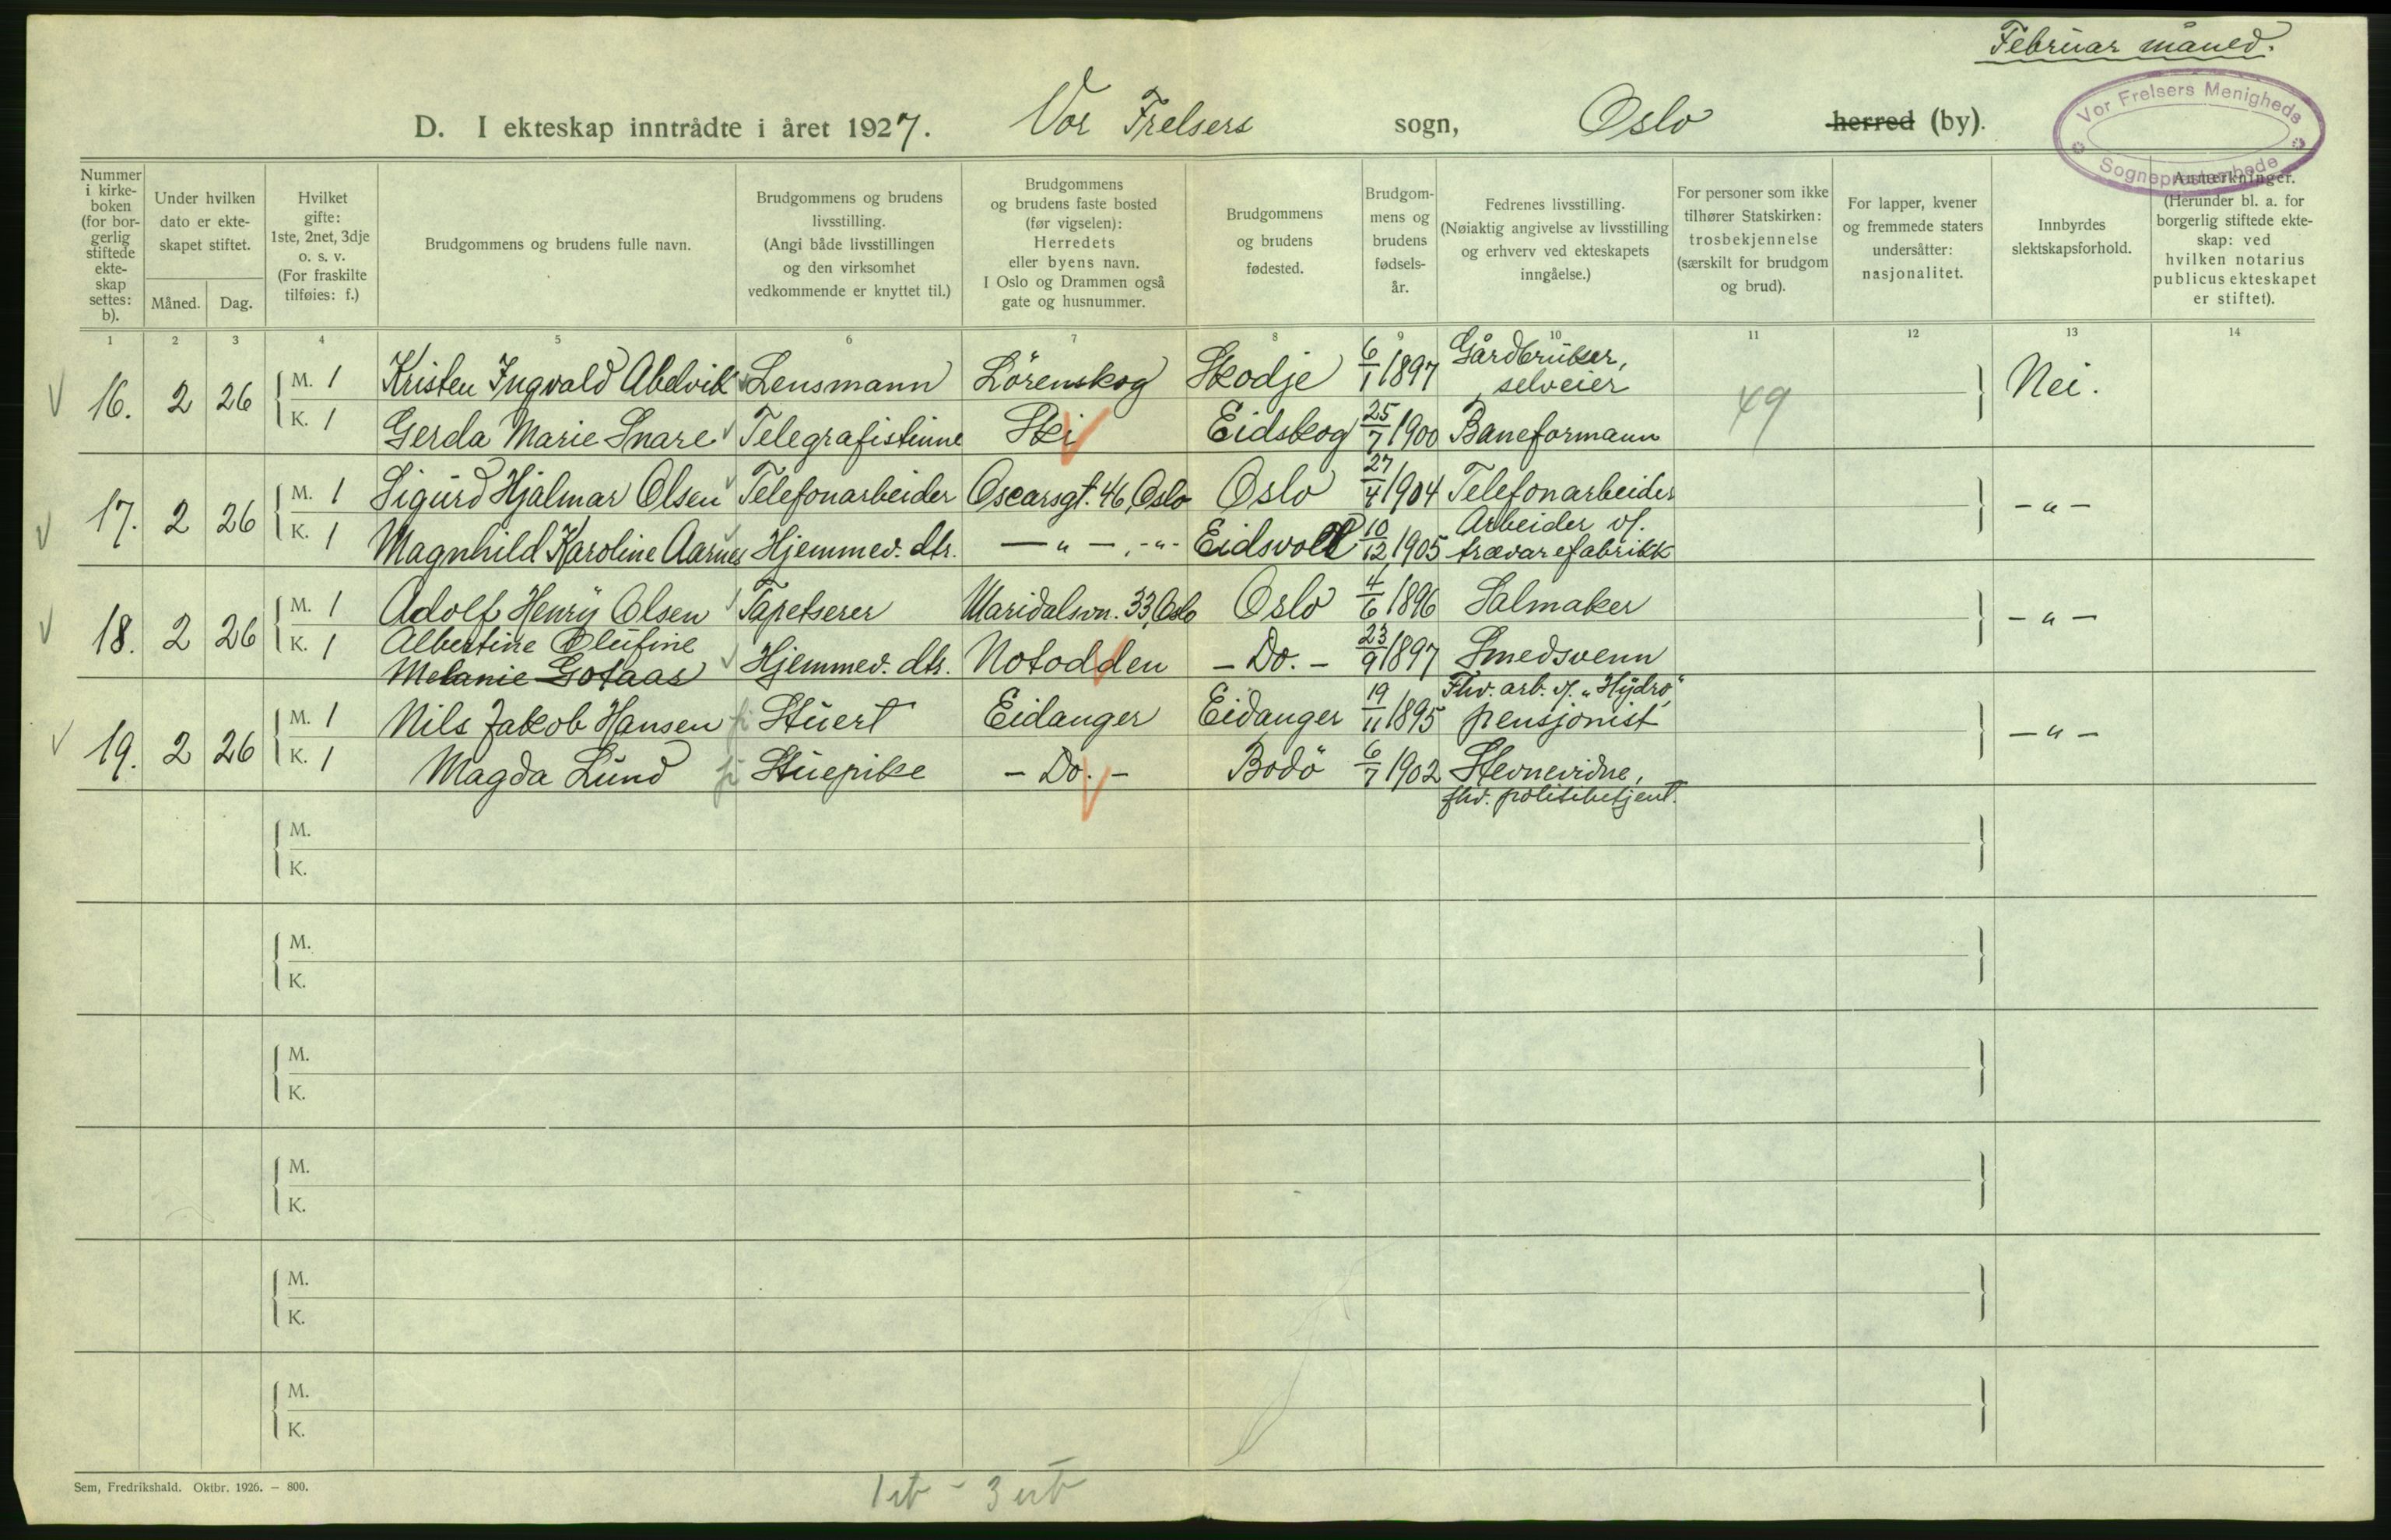 Februar måned.
D. I ekteskap inntrådte i året 1927. Vor Frelsers sogn, Oslo herred (by).
Vor Frelsers Menigheds
Sogneprestembede
Nummer i kirke-boken (for bor-gerlig stiftede ekte-skap settes: b).
Under hvilken dato er ekte-skapet stiftet.
Måned. Dag.
Hvilket gifte: 1ste, 2net, 3dje o. s. v. (For fraskilte tilføies: f.)
Brudgommens og brudens fulle navn.
Brudgommens og brudens livsstilling. (Angi både livsstillingen og den virksomhet vedkommende er knyttet til.)
Brudgommens og brudens faste bosted (før vigselen): Herredets eller byens navn. I Oslo og Drammen også gate og husnummer.
Brudgommens og brudens fødested.
Brudgom-mens og brudens fødsels-år.
Fedrenes livsstilling. (Nøiaktig angivelse av livsstilling og erhverv ved ekteskapets inngåelse.)
For personer som ikke tilhører Statskirken: trosbekjennelse (særskilt for brudgom og brud).
For lapper, kvener og fremmede staters undersåtter: nasjonalitet.
Innbyrdes slektskapsforhold.
Anmerkninger. (Herunder bl. a. for borgerlig stiftede ekte-skap: ved hvilken notarius publicus ekteskapet er stiftet).
1 2 3 4 5 6 7 8 9 10 11 12 13 14
16. 2 26 M. 1 Kristen Ingvald Abelvik Lensmann Lörenskog Skodje 6/1 1897 Gårdbruker, selveier Nei.
K. 1 Gerda Marie Snare Telegrafistinne Ski Eidskog 25/7 1900 Baneformann 49
17. 2 26 M. 1 Sigurd Hjalmar Olsen Telefonarbeider Oscarsgt. 46, Oslo Oslo 27/4 1904 Telefonarbeider - " -
K. 1 Magnhild Karoline Aarnes Hjemmev. dtr. - " -, - " - Eidsvoll 10/12 1905 Arbeider v/. trævarefabrikk
18. 2 26 M. 1 Adolf Henry Olsen Tapetserer Maridalsvn. 33, Oslo Oslo 4/6 1896 Salmaker - " -
K. 1 Albertine Olufine Melanie Gotaas Hjemmev. dtr. Notodden - Do. - 23/9 1897 Smedsvenn
19. 2 26 M. 1 Nils Jakob Hansen Stuert Eidanger Eidanger 19/11 1895 Fhv. arb. v/. "Hydro," pensjonist - " -
K. 1 Magda Lund Stuepike - Do. - Bodö 6/7 1902 Stevnevidne, fhv. politibetjent.
M.
K.
M.
K.
M.
K.
M.
K.
M.
K.
M.
K.
Sem, Fredrikshald. Oktbr. 1926. — 800.